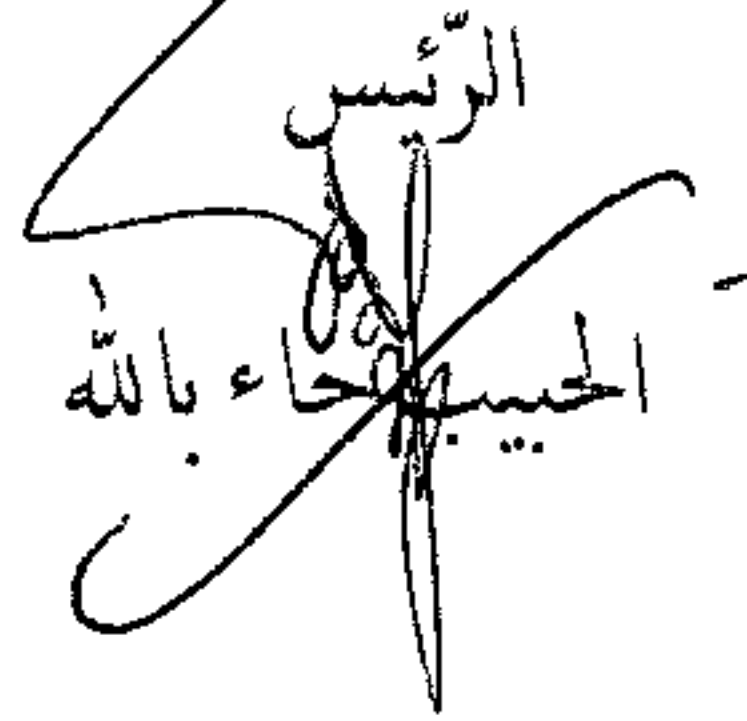 الرّئيس
الحبيب جاء بالله